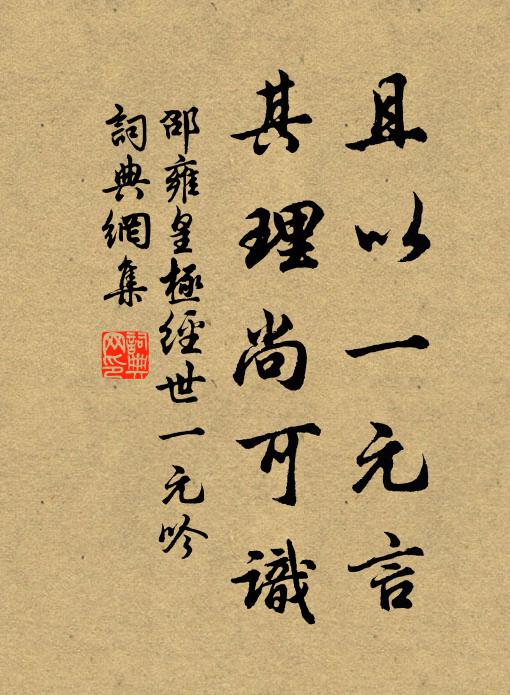 且以一元言
其理尚可識
邵雍皇極經世一元吟
詞典網集
詞典網印